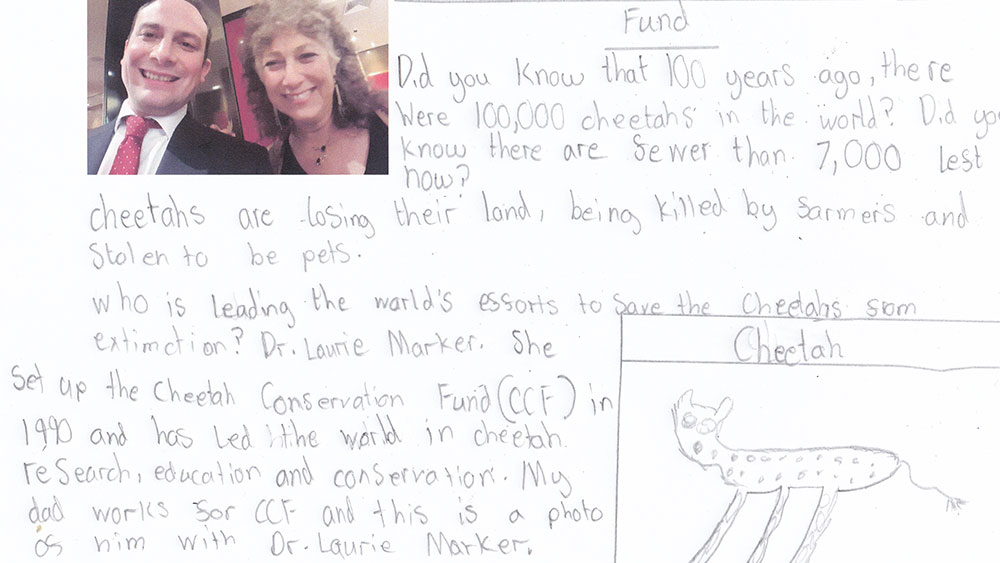 Fund
Did you know that 100 years ago, there
Were 100,000 cheetahs in the world? Did you
know there are fewer than 7,000 left
now?
cheetahs are losing their land, being killed by farmers and
Stolen to be pets.
who is leading the world's efforts to save the Cheetahs from
extimction? Dr. Laurie Marker. She
Set up the Cheetah Conservation Fund (CCF) in
1990 and has led the world in cheetah
reSearch, education and conservation. My
dad works for CCF and this is a photo
of him with Dr. Laurie Marker.
Cheetah